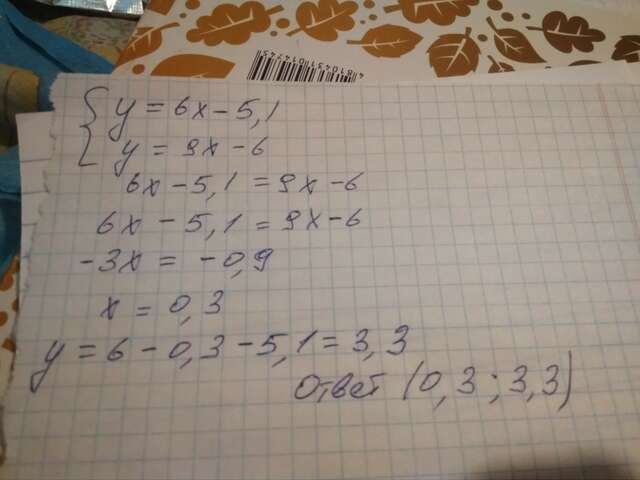 4810431014745
{ y = 6x - 5,1
y = 9x - 6
6x - 5,1 = 9x - 6
6x - 5,1 = 9x - 6
-3x = -0,9
x = 0,3
y = 6 - 0,3 - 5,1 = 3,3
Ответ (0,3; 3,3)